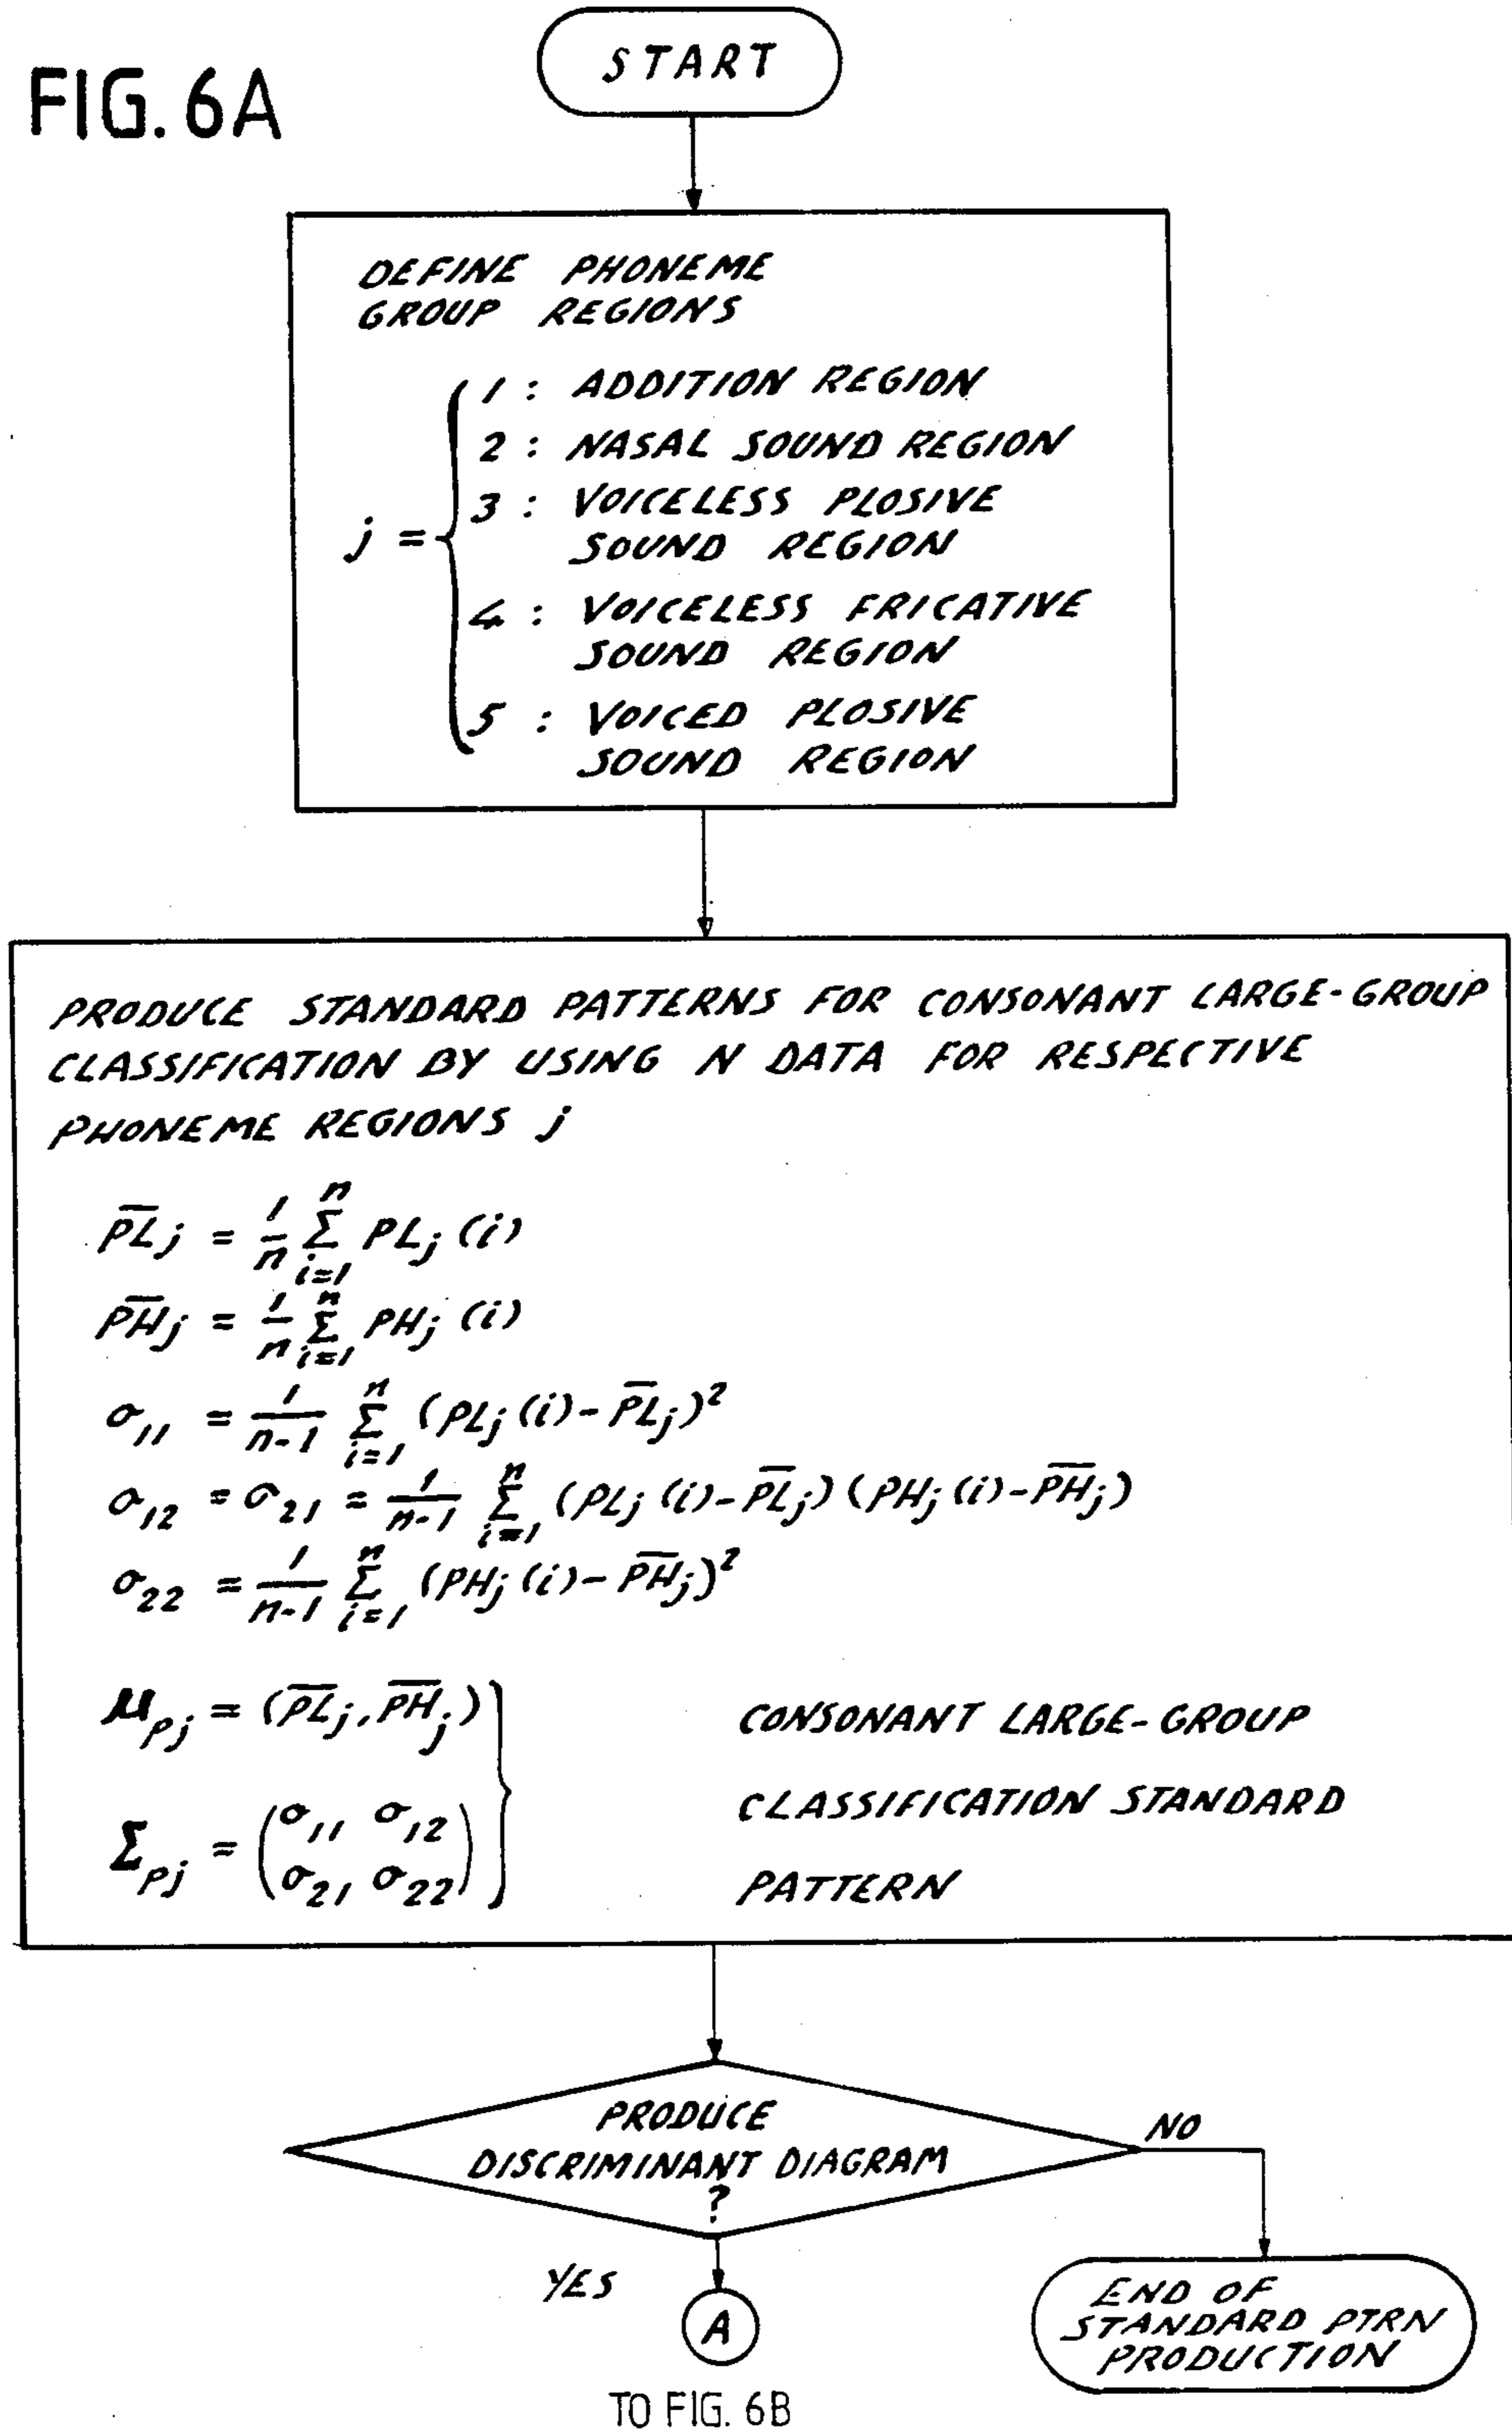 FIG. 6A
START
DEFINE PHONEME
GROUP REGIONS
j = { 1 : ADDITION REGION
2 : NASAL SOUND REGION
3 : VOICELESS PLOSIVE
SOUND REGION
4 : VOICELESS FRICATIVE
SOUND REGION
5 : VOICED PLOSIVE
SOUND REGION
PRODUCE STANDARD PATTERNS FOR CONSONANT LARGE-GROUP
CLASSIFICATION BY USING N DATA FOR RESPECTIVE
PHONEME REGIONS j
P̅L̅j = 1/n Σ_{i=1}^{n} PLj (i)
P̅H̅j = 1/n Σ_{i=1}^{n} PHj (i)
σ11 = 1/(n-1) Σ_{i=1}^{n} (PLj (i) - P̅L̅j)²
σ12 = σ21 = 1/(n-1) Σ_{i=1}^{n} (PLj (i) - P̅L̅j) (PHj (i) - P̅H̅j)
σ22 = 1/(n-1) Σ_{i=1}^{n} (PHj (i) - P̅H̅j)²
μpj = (P̅L̅j, P̅H̅j)
Σpj = (σ11 σ12
σ21 σ22)
CONSONANT LARGE-GROUP
CLASSIFICATION STANDARD
PATTERN
PRODUCE
DISCRIMINANT DIAGRAM
?
NO
YES
A
END OF
STANDARD PTRN
PRODUCTION
TO FIG. 6B